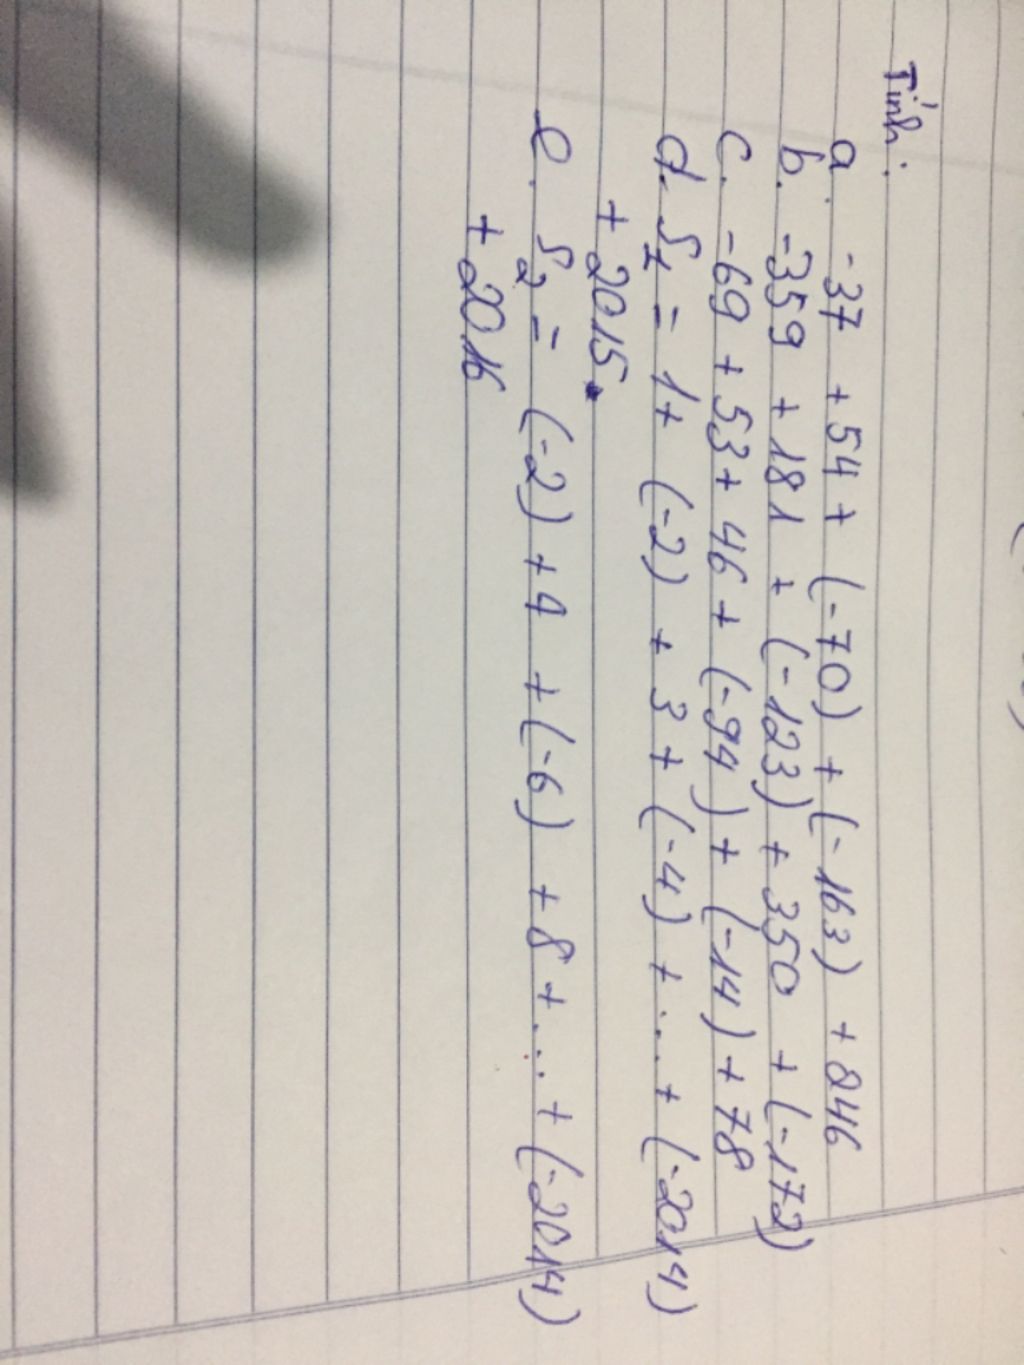 Tính:
a. -37 + 54 + (-70) + (-163) + 246
b. -359 + 181 + (-123) + 350 + (-172)
c. -69 + 53 + 46 + (-94) + (-14) + 78
d. S1 = 1 + (-2) + 3 + (-4) + ... + (-2014)
+ 2015.
e. S2 = (-2) + 4 + (-6) + 8 + ... + (-2014)
+ 2016